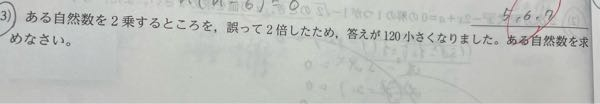 5,6,7
3) ある自然数を2乗するところを,誤って2倍したため,答えが120小さくなりました。ある自然数を求
めなさい。